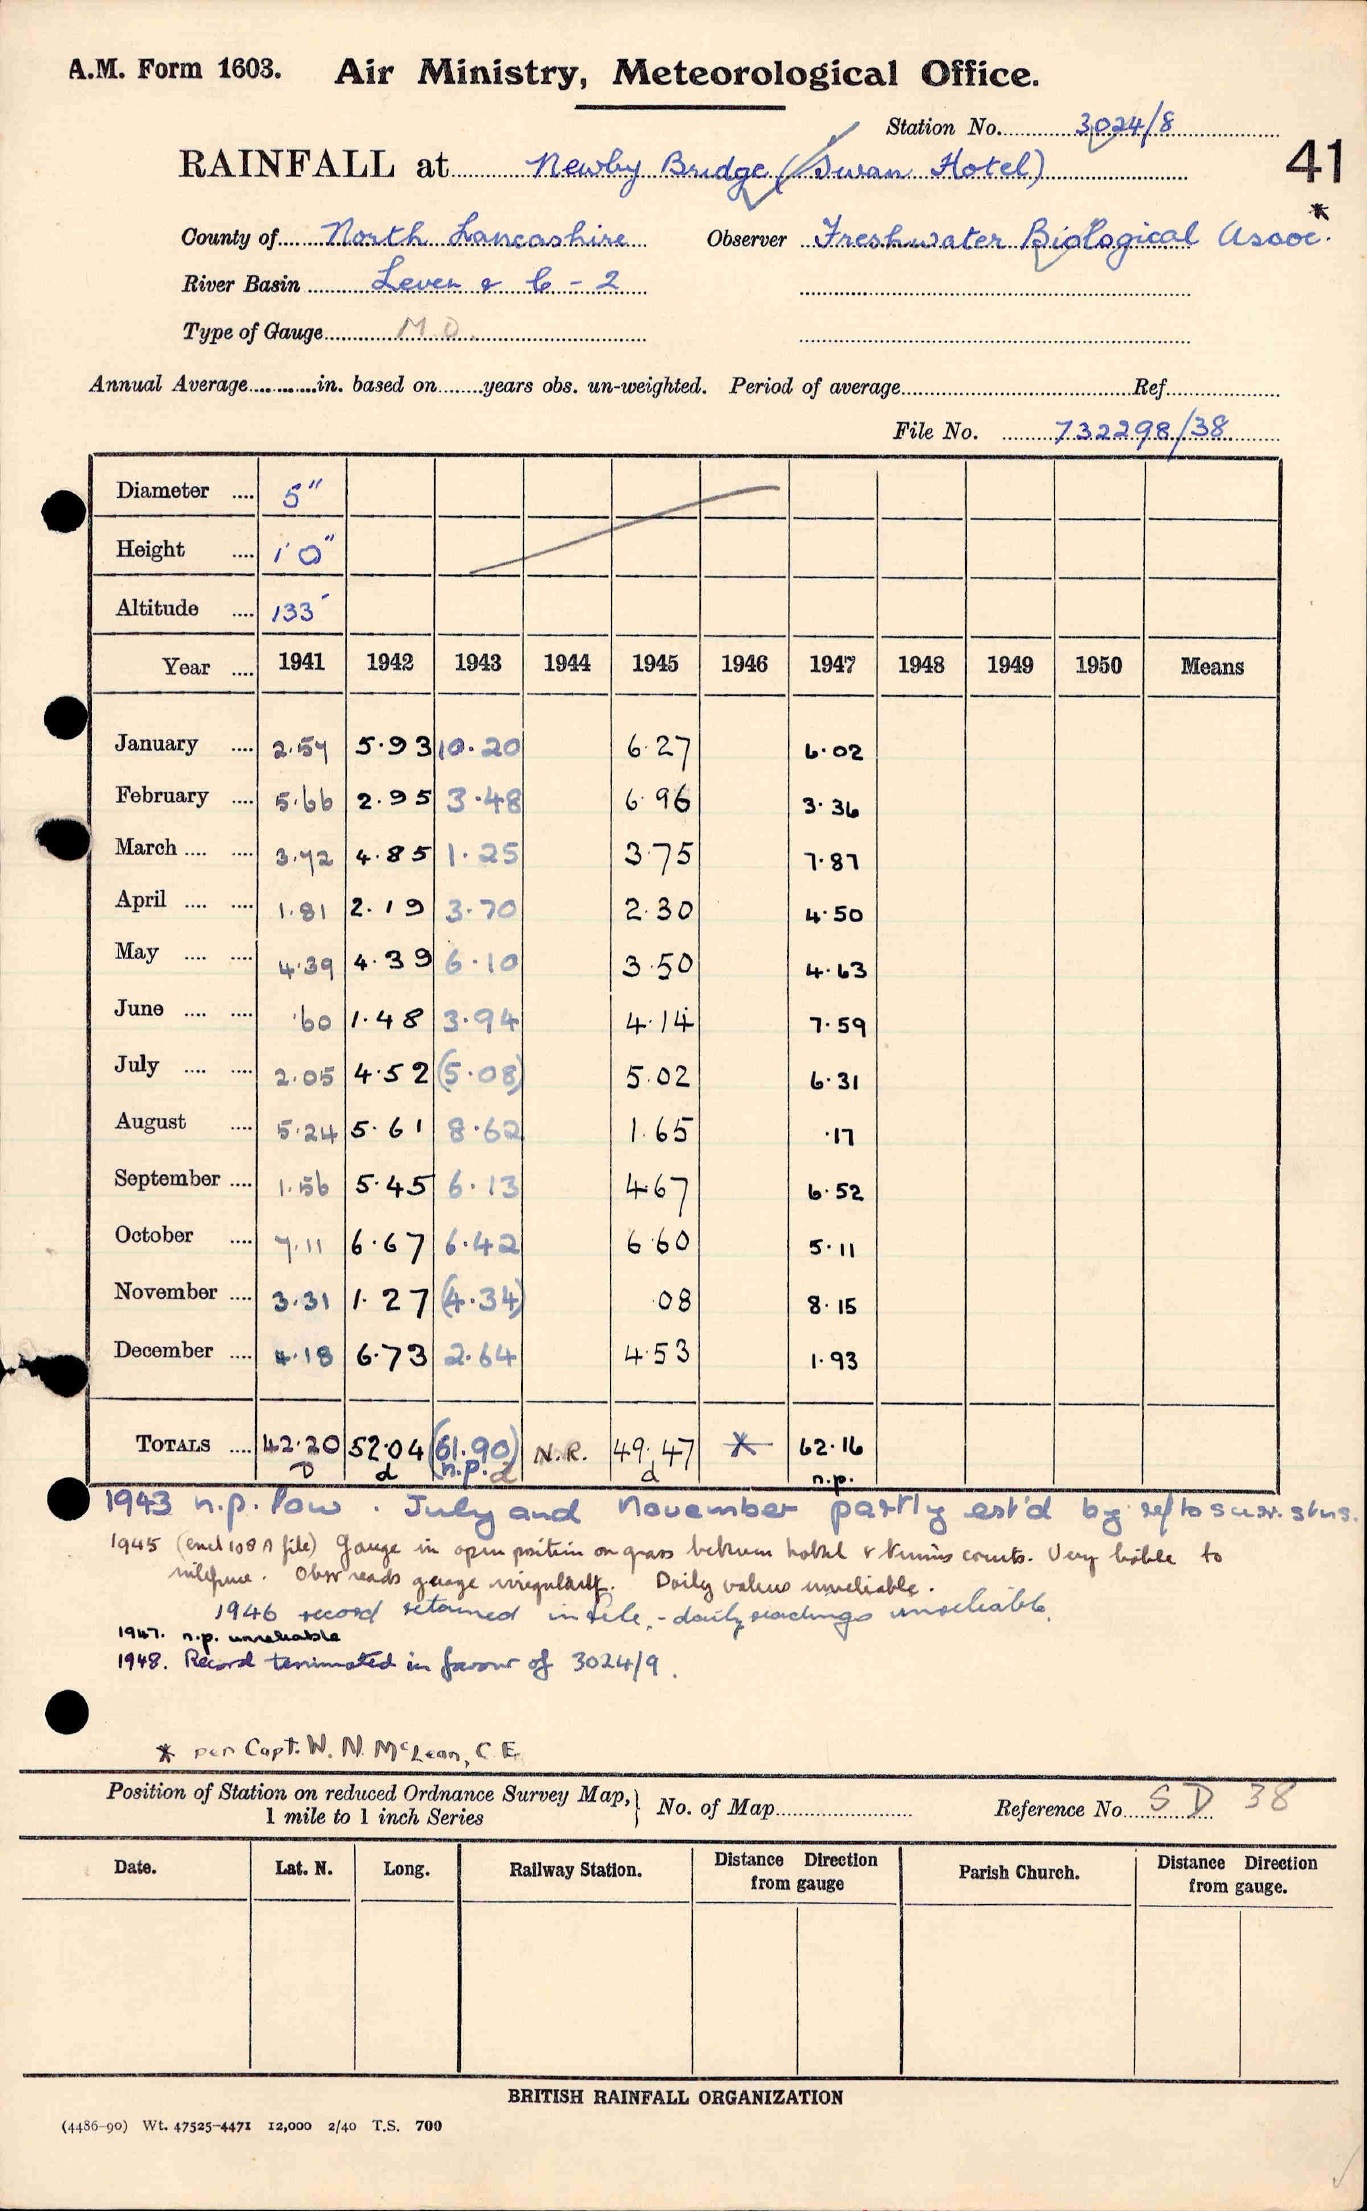 A.M. Form 1603. Air Ministry, Meteorological Office.
Station No. 3024/8
RAINFALL at Newby Bridge (Swan Hotel)
41
*
County of North Lancashire Observer Freshwater Biological Assoc.
River Basin Leven & C - 2
Type of Gauge M.O.
Annual Average in. based on years obs. un-weighted. Period of average Ref
File No. 732298/38
Diameter .... 5"
Height .... 1'0"
Altitude .... 133'
Year .... 1941 1942 1943 1944 1945 1946 1947 1948 1949 1950 Means
January .... 2.57 5.93 10.20 6.27 6.02
February .... 5.66 2.95 3.48 6.96 3.36
March .... .... 3.72 4.85 1.25 3.75 7.87
April .... .... 1.81 2.19 3.70 2.30 4.50
May .... .... 4.39 4.39 6.10 3.50 4.63
June .... .... .60 1.48 3.94 4.14 7.59
July .... .... 2.05 4.52 (5.08) 5.02 6.31
August .... 5.24 5.61 8.62 1.65 .17
September .... 1.56 5.45 6.13 4.67 6.52
October .... 7.11 6.67 6.42 6.60 5.11
November .... 3.31 1.27 (4.34) .08 8.15
December .... 4.18 6.73 2.64 4.53 1.93
TOTALS .... 42.20 52.04 (61.90) N.R. 49.47 * 62.16
D d n.p. d d n.p.
1943 n.p. low. July and November partly est'd by ref to surr. stns.
1945 (encl 108A file) Gauge in open position on grass between hotel & tennis courts. Very liable to
interference. Obsr reads gauge irregularly. Daily values unreliable.
1946 record retained in file, - daily readings unreliable.
1947. n.p. unreliable
1948. Record terminated in favour of 3024/9.
* per Capt. W. N. McLean, C.E.
Position of Station on reduced Ordnance Survey Map, 1 mile to 1 inch Series } No. of Map Reference No. SD 38
Date. Lat. N. Long. Railway Station. Distance Direction from gauge Parish Church. Distance Direction from gauge.
BRITISH RAINFALL ORGANIZATION
(4486-90) Wt. 47525-4471 12,000 2/40 T.S. 700